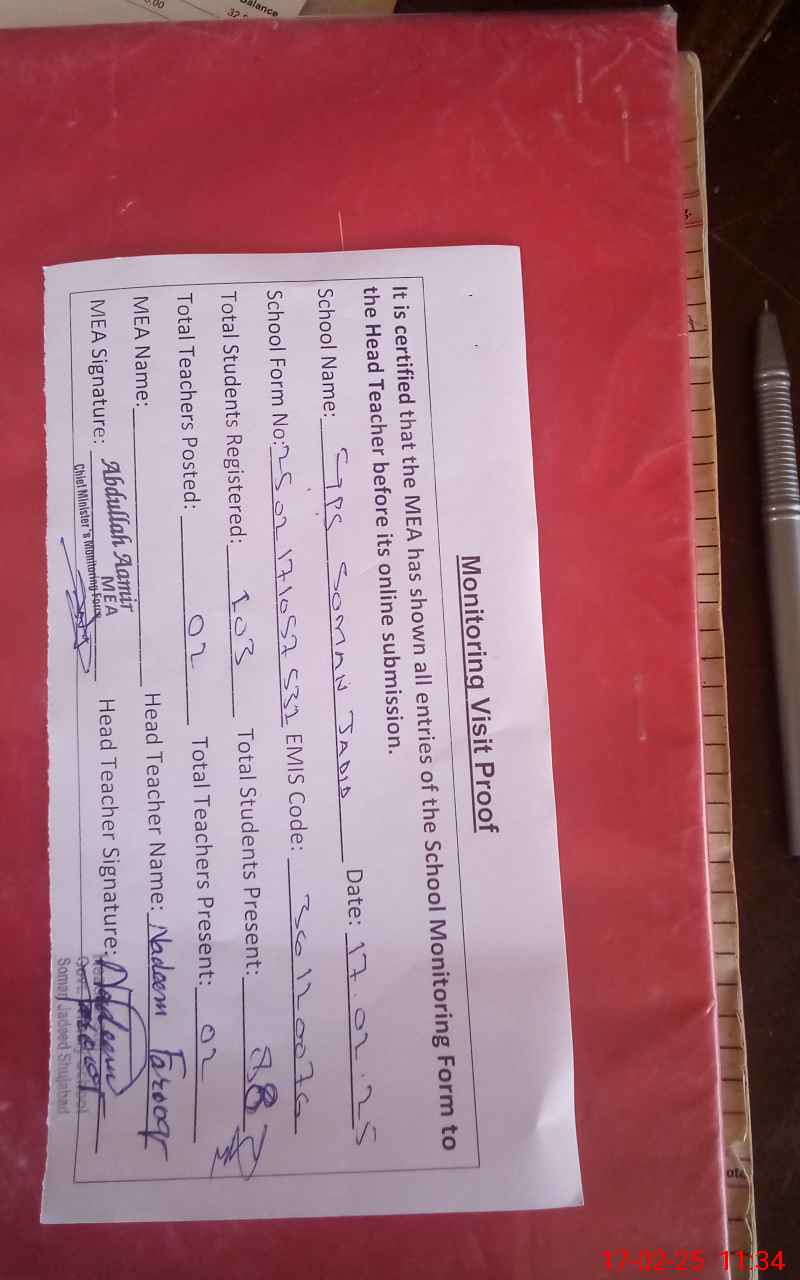 Balance
Monitoring Visit Proof
It is certified that the MEA has shown all entries of the School Monitoring Form to
the Head Teacher before its online submission.
School Name: GPS SOMAN JADID Date: 17.02.25
School Form No: 2502171057532 EMIS Code: 36120076
Total Students Registered: 103 Total Students Present: 88
Total Teachers Posted: 02 Total Teachers Present: 02
MEA Name: Head Teacher Name: Nadeem Farooq
MEA Signature: Abdullah Aamir Head Teacher Signature: Nadeem Farooq
MEA
Chief Minister's Monitoring Force
Soman Jadeed Shujabad
17-02-25 11:34